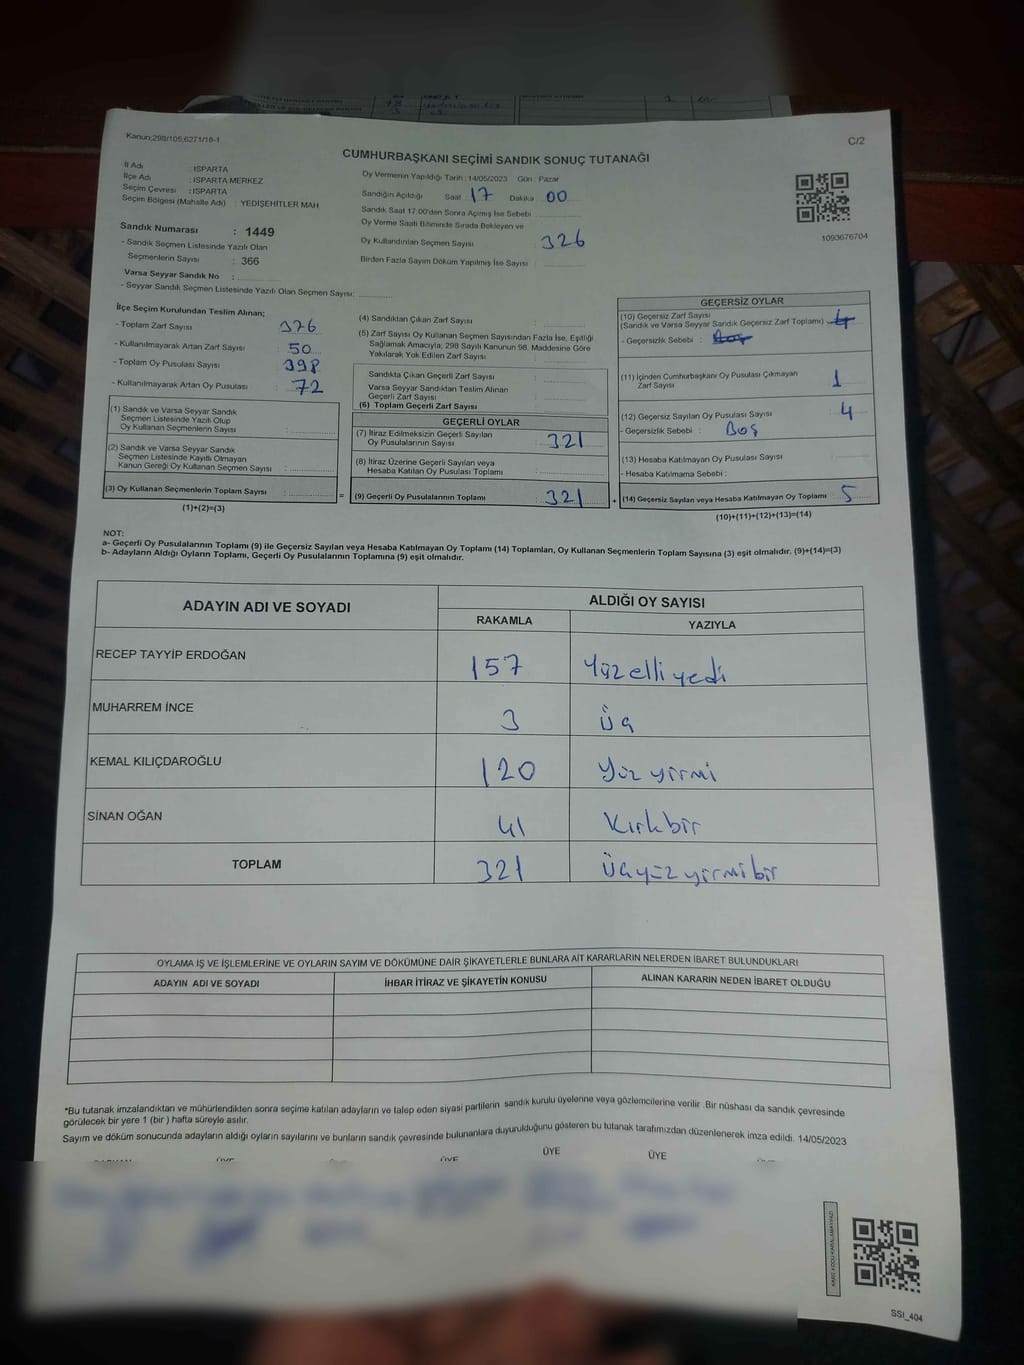 Kanun;298/105,6271/18-1
C/2
CUMHURBAŞKANI SEÇİMİ SANDIK SONUÇ TUTANAĞI
İl Adı : ISPARTA
İlçe Adı : ISPARTA MERKEZ
Seçim Çevresi : ISPARTA
Seçim Bölgesi (Mahalle Adı) : YEDİŞEHİTLER MAH
Sandık Numarası : 1449
- Sandık Seçmen Listesinde Yazılı Olan
Seçmenlerin Sayısı : 366
Varsa Seyyar Sandık No :
- Seyyar Sandık Seçmen Listesinde Yazılı Olan Seçmen Sayısı:
Oy Vermenin Yapıldığı Tarih : 14/05/2023 Gün : Pazar
Sandığın Açıldığı Saat 17 Dakika 00
Sandık Saat 17.00'den Sonra Açmış İse Sebebi
Oy Verme Saati Bitiminde Sırada Bekleyen ve
Oy Kullandırılan Seçmen Sayısı 326
Birden Fazla Sayım Döküm Yapılmış İse Sayısı :
1093676704
İlçe Seçim Kurulundan Teslim Alınan;
- Toplam Zarf Sayısı : 376
- Kullanılmayarak Artan Zarf Sayısı : 50
- Toplam Oy Pusulası Sayısı : 398
- Kullanılmayarak Artan Oy Pusulası : 72
(1) Sandık ve Varsa Seyyar Sandık
Seçmen Listesinde Yazılı Olup
Oy Kullanan Seçmenlerin Sayısı :
(2) Sandık ve Varsa Seyyar Sandık
Seçmen Listesinde Kayıtlı Olmayan
Kanun Gereği Oy Kullanan Seçmen Sayısı :
(3) Oy Kullanan Seçmenlerin Toplam Sayısı :
(1)+(2)=(3)
=
(4) Sandıktan Çıkan Zarf Sayısı :
(5) Zarf Sayısı Oy Kullanan Seçmen Sayısından Fazla İse, Eşitliği
Sağlamak Amacıyla, 298 Sayılı Kanunun 98. Maddesine Göre
Yakılarak Yok Edilen Zarf Sayısı :
Sandıkta Çıkan Geçerli Zarf Sayısı :
Varsa Seyyar Sandıktan Teslim Alınan
Geçerli Zarf Sayısı :
(6) Toplam Geçerli Zarf Sayısı :
GEÇERLİ OYLAR
(7) İtiraz Edilmeksizin Geçerli Sayılan
Oy Pusulalarının Sayısı : 321
(8) İtiraz Üzerine Geçerli Sayılan veya
Hesaba Katılan Oy Pusulası Toplamı :
(9) Geçerli Oy Pusulalarının Toplamı : 321
+
GEÇERSİZ OYLAR
(10) Geçersiz Zarf Sayısı
(Sandık ve Varsa Seyyar Sandık Geçersiz Zarf Toplamı) 4
- Geçersizlik Sebebi : Boş
(11) İçinden Cumhurbaşkanı Oy Pusulası Çıkmayan
Zarf Sayısı : 1
(12) Geçersiz Sayılan Oy Pusulası Sayısı : 4
- Geçersizlik Sebebi : Boş
(13) Hesaba Katılmayan Oy Pusulası Sayısı :
- Hesaba Katılmama Sebebi :
(14) Geçersiz Sayılan veya Hesaba Katılmayan Oy Toplamı : 5
(10)+(11)+(12)+(13)=(14)
NOT:
a- Geçerli Oy Pusulalarının Toplamı (9) ile Geçersiz Sayılan veya Hesaba Katılmayan Oy Toplamı (14) Toplamları, Oy Kullanan Seçmenlerin Toplam Sayısına (3) eşit olmalıdır. (9)+(14)=(3)
b- Adayların Aldığı Oyların Toplamı, Geçerli Oy Pusulalarının Toplamına (9) eşit olmalıdır.
ADAYIN ADI VE SOYADI
ALDIĞI OY SAYISI
RAKAMLA YAZIYLA
RECEP TAYYİP ERDOĞAN 157 Yüz elli yedi
MUHARREM İNCE 3 Üç
KEMAL KILIÇDAROĞLU 120 Yüz yirmi
SİNAN OĞAN 41 Kırkbir
TOPLAM 321 Üçyüz yirmi bir
OYLAMA İŞ VE İŞLEMLERİNE VE OYLARIN SAYIM VE DÖKÜMÜNE DAİR ŞİKAYETLERLE BUNLARA AİT KARARLARIN NELERDEN İBARET BULUNDUKLARI
ADAYIN ADI VE SOYADI İHBAR İTİRAZ VE ŞİKAYETİN KONUSU ALINAN KARARIN NEDEN İBARET OLDUĞU
*Bu tutanak imzalandıktan ve mühürlendikten sonra seçime katılan adayların ve talep eden siyasi partilerin sandık kurulu üyelerine veya gözlemcilerine verilir. Bir nüshası da sandık çevresinde
görülecek bir yere 1 (bir) hafta süreyle asılır.
Sayım ve döküm sonucunda adayların aldığı oyların sayılarını ve bunların sandık çevresinde bulunanlara duyurulduğunu gösteren bu tutanak tarafımızdan düzenlenerek imza edildi. 14/05/2023
ÜYE ÜYE ÜYE ÜYE
SSI_404